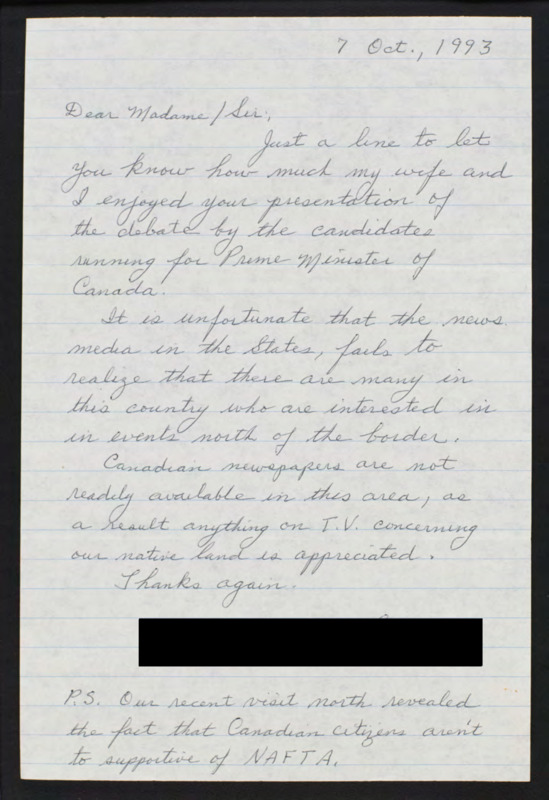 7 Oct., 1993
Dear Madame/Sir;
Just a line to let
you know how much my wife and
I enjoyed your presentation of
the debate by the candidates
running for Prime Minister of
Canada.
It is unfortunate that the news
media in the States, fails to
realize that there are many in
this country who are interested in
in events north of the border.
Canadian newspapers are not
readily available in this area, as
a result anything on T.V. concerning
our native land is appreciated.
Thanks again.
P.S. Our recent visit north revealed
the fact that Canadian citizens aren't
to supportive of NAFTA.